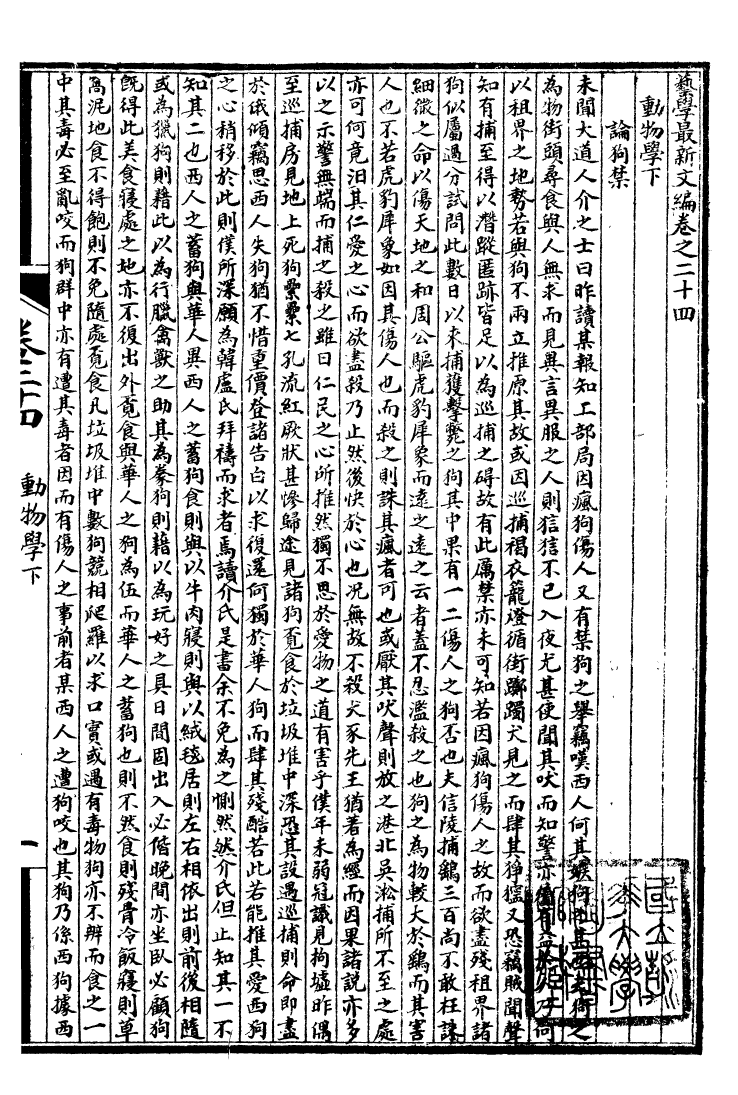 藝學最新文編卷之二十四
動物學下
論狗禁
未聞大道人介之士曰昨讀某報知工部局因瘋狗傷人又有禁狗之舉竊嘆西人何其
為物街頭尋食與人無求而見異言異服之人則狺狺不已入夜尤甚使聞其吠而知警亦
以租界之地勢若與狗不兩立推原其故或因巡捕褐衣籠燈循街躑躅犬見之而肆其猙獰又恐竊賊聞聲
知有捕至得以潛蹤匿跡皆足以為巡捕之碍故有此厲禁亦未可知若因瘋狗傷人之故而欲盡殘租界諸
狗似屬過分試問此數日以來捕獲擊斃之狗其中果有一二傷人之狗否也夫信陵捕鷂三百尚不敢枉誅
細微之命以傷天地之和周公驅虎豹犀象而遠之遠之云者蓋不忍濫殺之也狗之為物較大於鷂而其害
人也不若虎豹犀象如因其傷人也而殺之則誅其瘋者可也或厭其吠聲則放之港北吳淞捕所不至之處
亦可何竟汩其仁愛之心而欲盡殺乃止然後快於心也况無故不殺犬豕先王猶著為經而因果諸說亦多
以之示警無端而捕之殺之雖曰仁民之心所推然獨不思於愛物之道有害乎僕年未弱冠讖見拘墟昨偶
至巡捕房見地上死狗纍纍七孔流紅厥狀甚慘歸途見諸狗覓食於垃圾堆中深恐其設遇巡捕則命即盡
於俄傾竊思西人失狗猶不惜重價登諸告白以求復還何獨於華人狗而肆其殘酷若此若能推其愛西狗
之心稍移於此則僕所深願為韓盧氏拜禱而求者焉讀介氏是書余不免為之惻然然介氏但止知其一不
知其二也西人之蓄狗與華人異西人之蓄狗食則與以牛肉寢則與以絨毯居則左右相依出則前後相隨
或為獵狗則藉此以為行臘禽獸之助其為豢狗則藉以為玩好之具日間固出入必偕晚間亦坐臥必顧狗
既得此美食寢處之地亦不復出外覓食與華人之狗為伍而華人之蓄狗也則不然食則殘骨冷飯寢則草
窩泥地食不得飽則不免隨處覓食凡垃圾堆中數狗競相爬羅以求口實或遇有毒物狗亦不辨而食之一
中其毒必至亂咬而狗群中亦有遭其毒者因而有傷人之事前者某西人之遭狗咬也其狗乃係西狗據西
卷二十四
動物學下
一